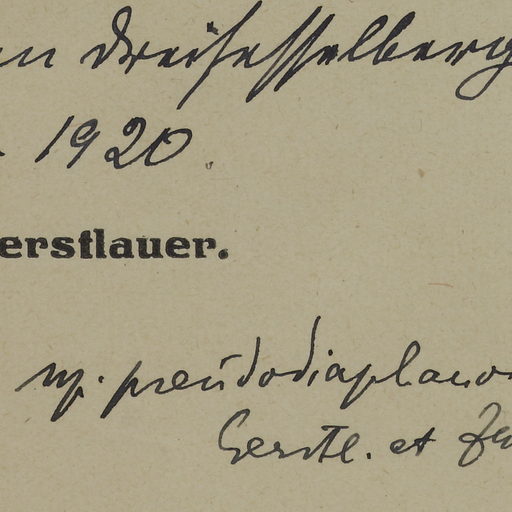 n Dreisesselberg
1920.
erstlauer.
sp. pseudodiaplano
Gerstl. et